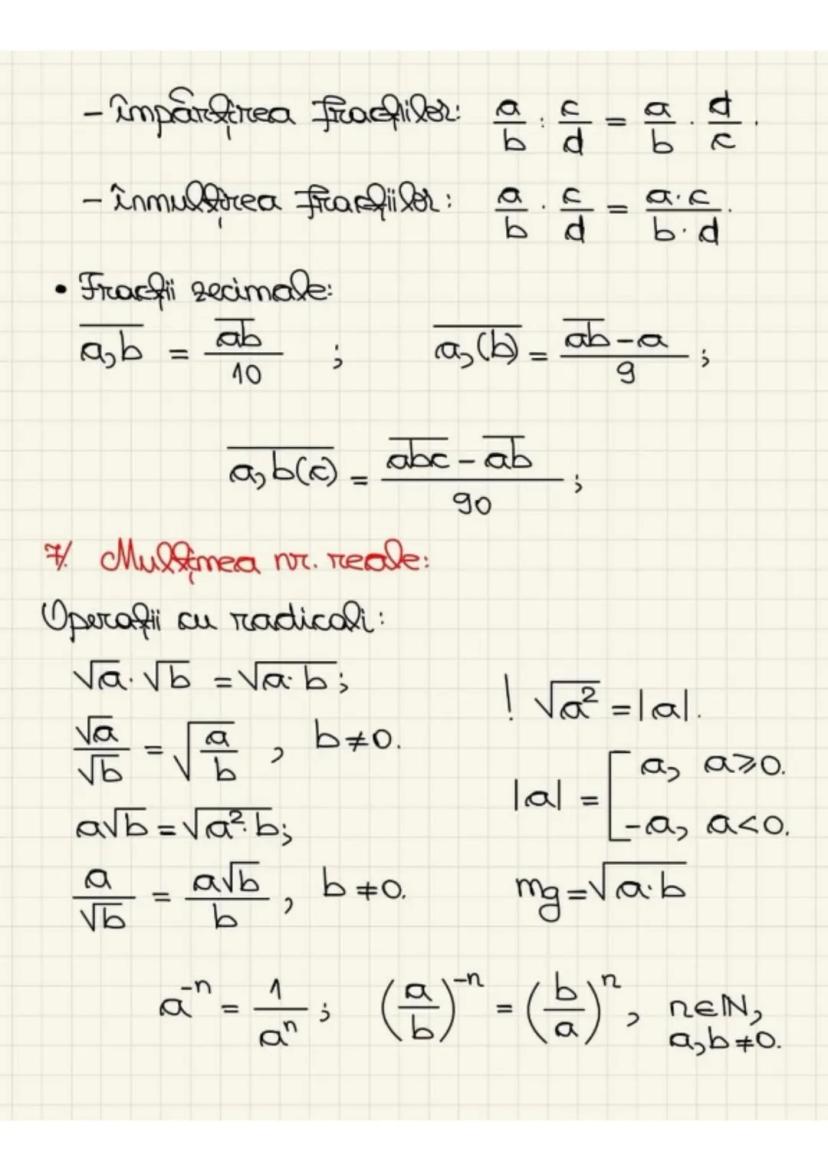 - împărțirea fracțiilor: a/b : c/d = a/b · d/c.
- înmulțirea fracțiilor: a/b · c/d = a·c/b·d.
• Fracții zecimale:
a,b̅ = a̅b̅/10 ; a̅,̅(̅b̅)̅ = (a̅b̅-a)/9 ;
a̅,̅b̅(̅c̅)̅ = (a̅b̅c̅ - a̅b̅)/90 ;
7/ Mulțimea nr. reale:
Operații cu radicali:
√a · √b = √(a·b);
! √(a²) = |a|.
√a/√b = √(a/b) , b≠0.
|a| = [ a, a⩾0.
-a, a<0.
a√b = √(a²·b);
a/√b = a√b/b , b≠0.
mg = √(a·b)
a⁻ⁿ = 1/aⁿ ; (a/b)⁻ⁿ = (b/a)ⁿ , n∈ℕ,
a,b≠0.